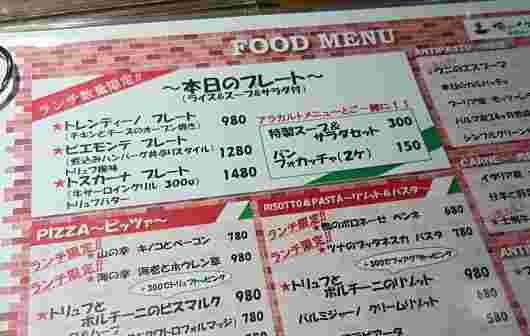 FOOD MENU
ランチ数量限定!!
～本日のプレート～
(ライス&スープ&サラダ付)
★トレンティーノ プレート 980
(チキンとチーズのオーブン焼き)
★ピエモンテ プレート 1280
トリュフ風味
★トスカーナ プレート 1480
(牛サーロイングリル 300g)
トリュフバター
アラカルトメニューとご一緒に!!
特製スープ&サラダセット 300
パン
フォカッチャ(2ケ) 150
PIZZA～ピッツァ～
ランチ限定!! 780
★山の幸 キノコとベーコン
ランチ限定!! 780
★海の幸 海老とホウレン草
+300でトリュフトッピング
★トリュフと
ポルチーニのビスマルク 980
980
RISOTTO&PASTA～リゾット&パスタ～
ランチ限定!! 680
★鴨のボロネーゼ ペンネ
ランチ限定!! 780
★ツナのプッタネスカ パスタ
★トリュフと
ポルチーニのリゾット 980
パルミジャーノ クリームリゾット
ANTIPASTO
シンプルグリーン
CARNE
イタリア産